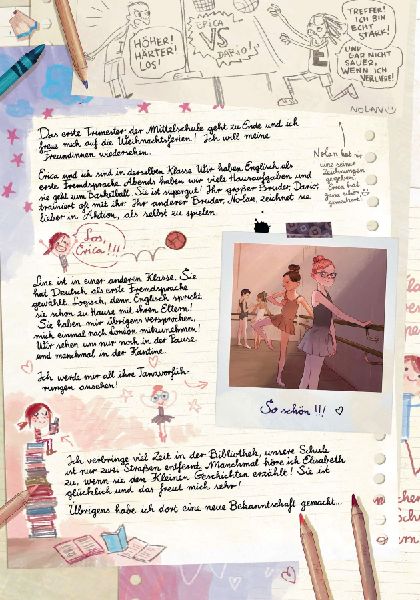 HÖHER!
HÄRTER!
LOS!
ERICA
VS
DARIO!
TREFFER!
ICH BIN
ECHT
STARK!
UND
GAR NICHT
SAUER,
WENN ICH
VERLIERE!
NOLAN
Das erste Trimester der Mittelschule geht zu Ende und ich
freue mich auf die Weihnachtsferien! Ich will meine
Freundinnen wiedersehen.
Erica und ich sind in derselben Klasse. Wir haben Englisch als
erste Fremdsprache. Abends haben wir viele Hausaufgaben und
sie geht zum Basketball. Sie ist supergut! Ihr großer Bruder, Dario,
trainiert oft mit ihr. Ihr anderer Bruder, Nolan, zeichnet sie
lieber in Aktion, als selbst zu spielen.
Nolan hat mir
eine seiner
Zeichnungen
gegeben.
Erica hat
ganz schön
Los,
Erica!!!
Line ist in einer anderen Klasse. Sie
hat Deutsch als erste Fremdsprache
gewählt. Logisch, denn Englisch spricht
sie schon zu Hause mit ihren Eltern!
Sie haben mir übrigens versprochen,
mich einmal nach London mitzunehmen!
Wir sehen uns nur noch in der Pause
und manchmal in der Kantine.
Ich werde mir all ihre Tanzvorfüh-
rungen ansehen!
So schön!!!
Ich verbringe viel Zeit in der Bibliothek, unsere Schule
ist nur zwei Straßen entfernt. Manchmal höre ich Elisabeth
zu, wenn sie den Kleinen Geschichten erzählt! Sie ist
glücklich und das freut mich sehr!
Übrigens habe ich dort eine neue Bekanntschaft gemacht...